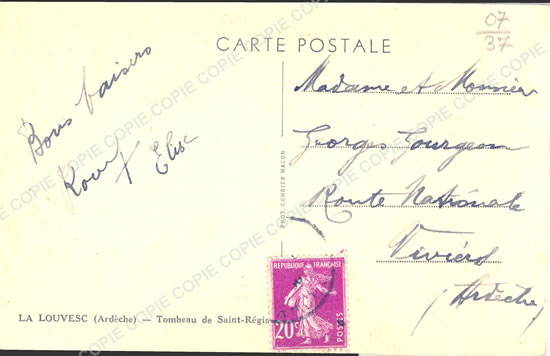 07
37
CARTE POSTALE
Bons baisers
Elise
Madame et Monsieur
Georges Gourgeon
Route Nationale
Viviers
(Ardèche)
PHOT. COMBIER MACON
REPUBLIQUE FRANÇAISE
20c
POSTES
LA LOUVESC (Ardèche) — Tombeau de Saint-Régis
COPIE COPIE COPIE COPIE COPIE